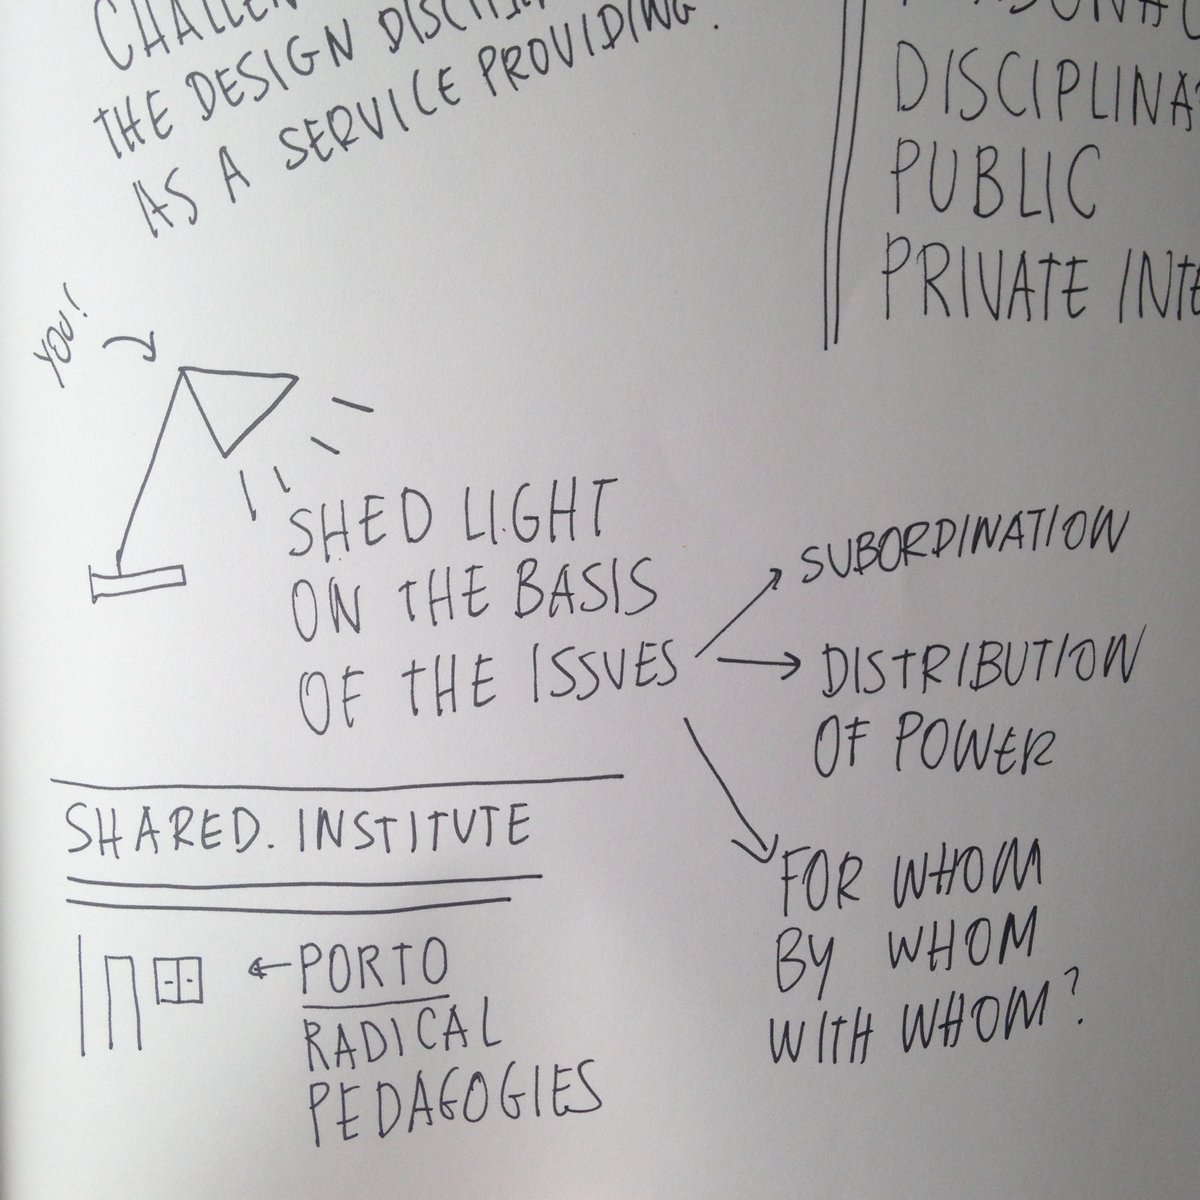 THE DESIGN
AS A SERVICE PROVIDING.
PUBLIC
PRIVATE
YOU!
SHED LIGHT
ON THE BASIS
OF THE ISSUES
SUBORDINATION
DISTRIBUTION
OF POWER
FOR WHOM
BY WHOM
WITH WHOM?
SHARED. INSTITUTE
PORTO
RADICAL
PEDAGOGIES